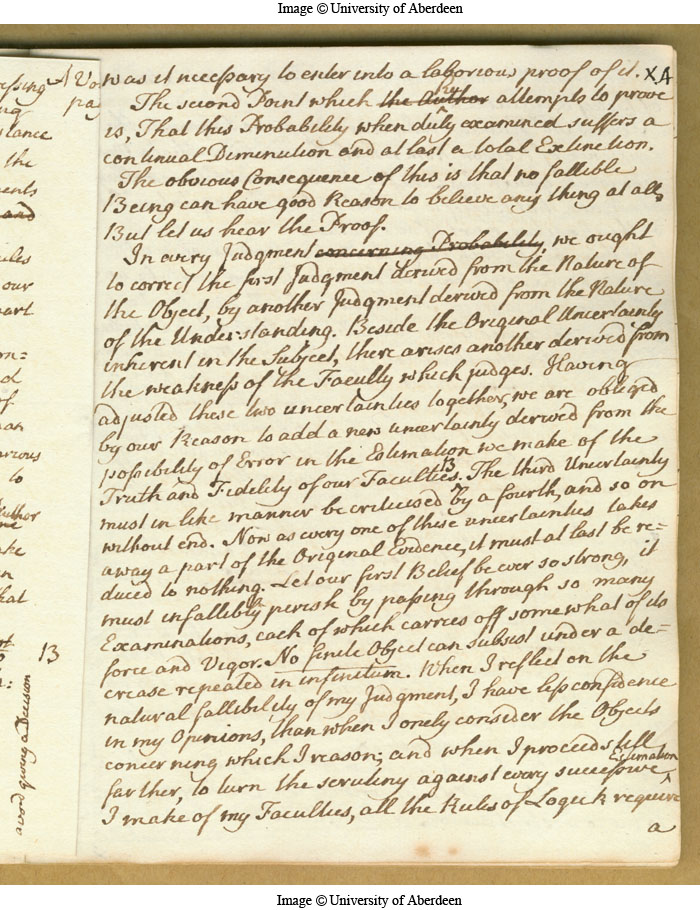 Image © University of Aberdeen
was it necessary to enter into a laborious proof of it. XA
The second Point which the Author attempts to prove
is, That this Probability when duly examined suffers a
continual Diminution and at last a total Extinction.
The obvious Consequence of this is that no fallible
Being can have good Reason to believe any thing at all.
But let us hear the Proof.
In every Judgment concerning Probability, we ought
to correct the first Judgment derived from the Nature of
the Object, by another Judgment derived from the Nature
of the Under-standing. Beside the Original Uncertainty
inherent in the Subject, there arises another derived from
the weakness of the Faculty which judges. Having
adjusted these two uncertainties together, we are obliged
by our Reason to add a new uncertainty derived from the
possibility of Error in the Estimation we make of the
Truth and Fidelity of our Faculties. 13 The third Uncertainty
must in like manner be criticised by a fourth, and so on
without end. Now as every one of these uncertainties takes
away a part of the Original Evidence, it must at last be re=
duced to nothing. Let our first Belief be ever so strong, it
must infallibly perish by passing through so many
Examinations, each of which carries off somewhat of its
force and Vigor. No finite Object can subsist under a de=
crease repeated in infinitum. When I reflect on the
natural fallibility of my Judgment, I have less confidence
in my Opinions, than when I onely consider the Objects
concerning which I reason; and when I proceed still
farther, to turn the scrutiny against every successive Estimation
I make of my Faculties, all the Rules of Logick require
a
essing
ng
stance
the
ments
and
ules
our
part
on:
d
of
man
arious
to
Author
ake
n
that
13
a word giving a Decision
Image © University of Aberdeen